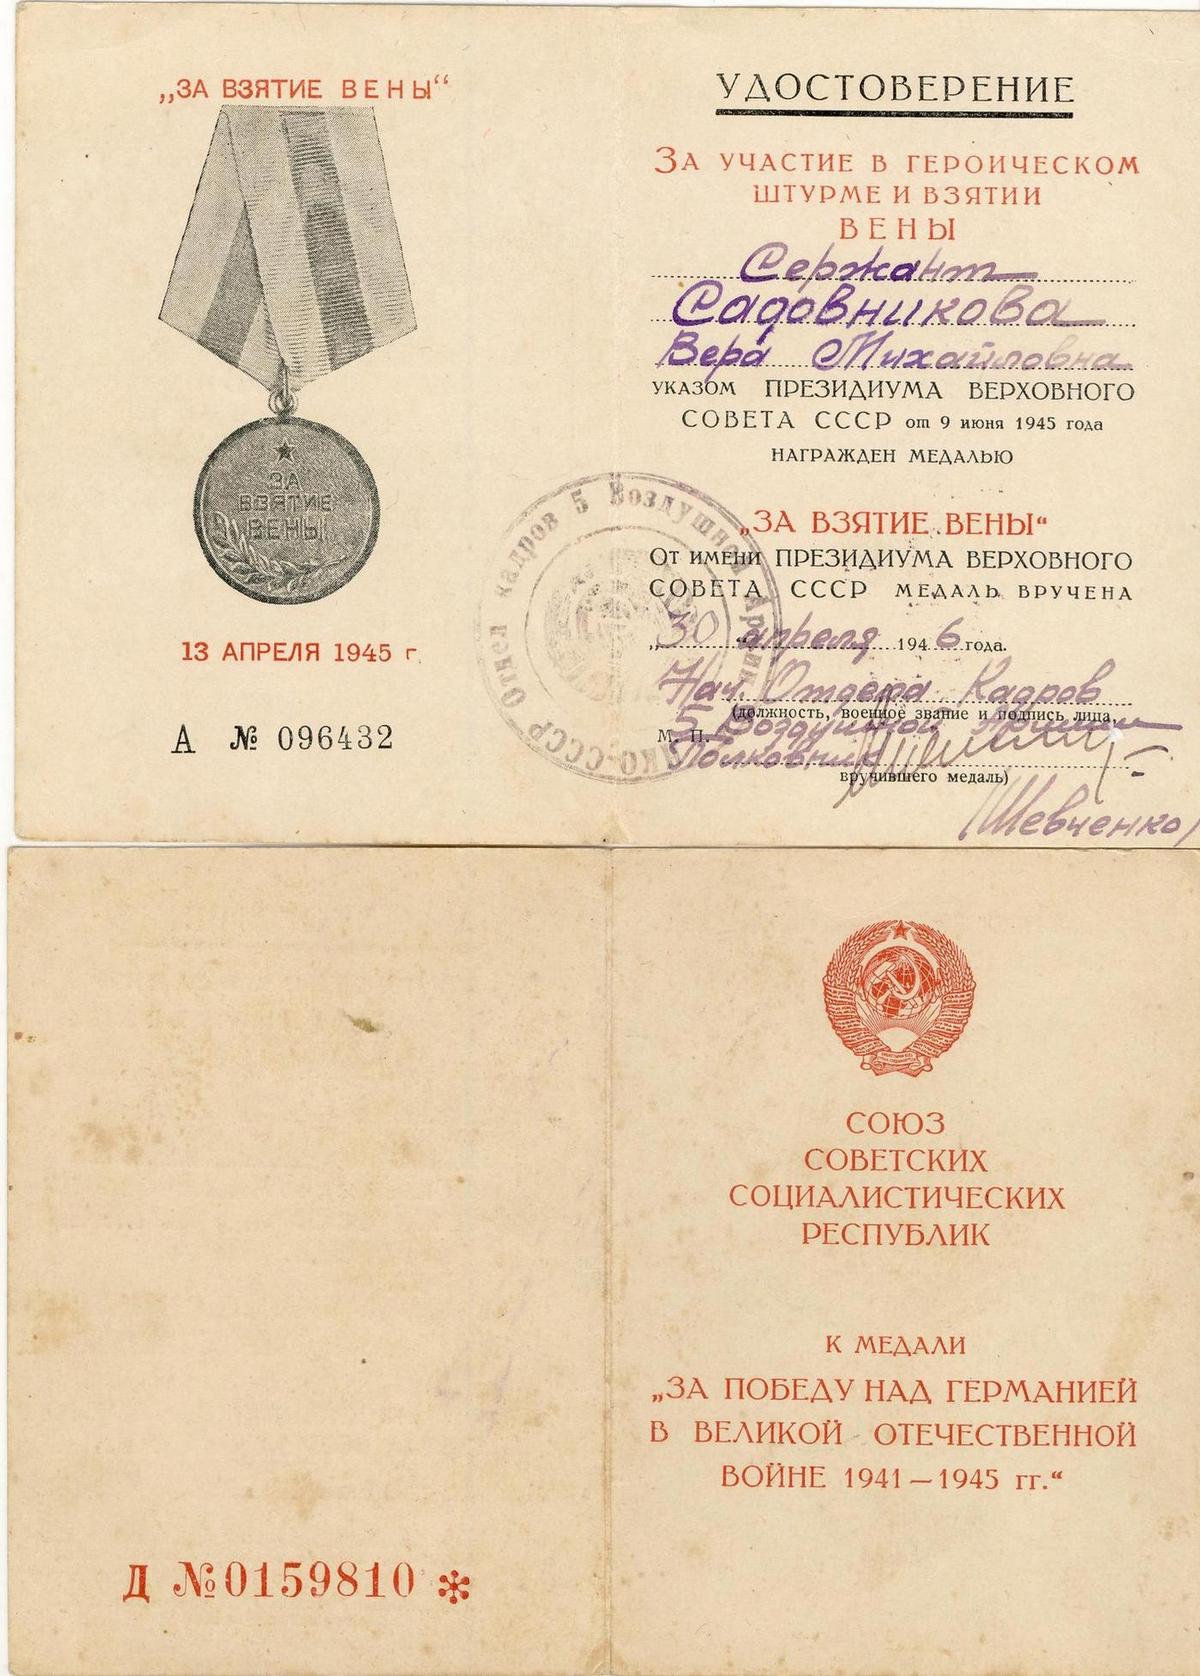 „ЗА ВЗЯТИЕ ВЕНЫ“
ЗА
ВЗЯТИЕ
ВЕНЫ
13 АПРЕЛЯ 1945 г.
А № 096432
УДОСТОВЕРЕНИЕ
ЗА УЧАСТИЕ В ГЕРОИЧЕСКОМ
ШТУРМЕ И ВЗЯТИИ
ВЕНЫ
Сержант
Садовникова
Вера Михайловна
УКАЗОМ ПРЕЗИДИУМА ВЕРХОВНОГО
СОВЕТА СССР от 9 июня 1945 года
НАГРАЖДЕН МЕДАЛЬЮ
„ЗА ВЗЯТИЕ ВЕНЫ“
ОТ ИМЕНИ ПРЕЗИДИУМА ВЕРХОВНОГО
СОВЕТА СССР МЕДАЛЬ ВРУЧЕНА
„30 апреля 1946 года.
Нач. Отдела Кадров
(должность, военное звание и подпись лица,
5 Воздушной Армии
М. П.
Полковник
вручившего медаль)
Шевченко
Отдел кадров 5 Воздушной Армии
НКО-СССР
СОЮЗ
СОВЕТСКИХ
СОЦИАЛИСТИЧЕСКИХ
РЕСПУБЛИК
К МЕДАЛИ
„ЗА ПОБЕДУ НАД ГЕРМАНИЕЙ
В ВЕЛИКОЙ ОТЕЧЕСТВЕННОЙ
ВОЙНЕ 1941—1945 гг.“
Д №0159810 *